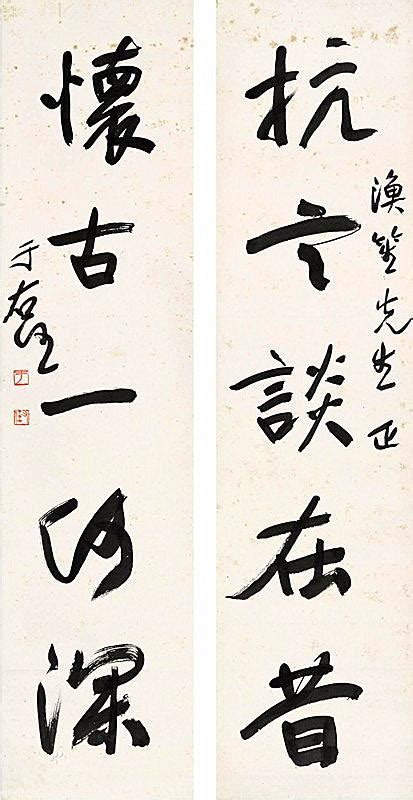 抗言談在昔
笙先生正
懷古一何深
于右任